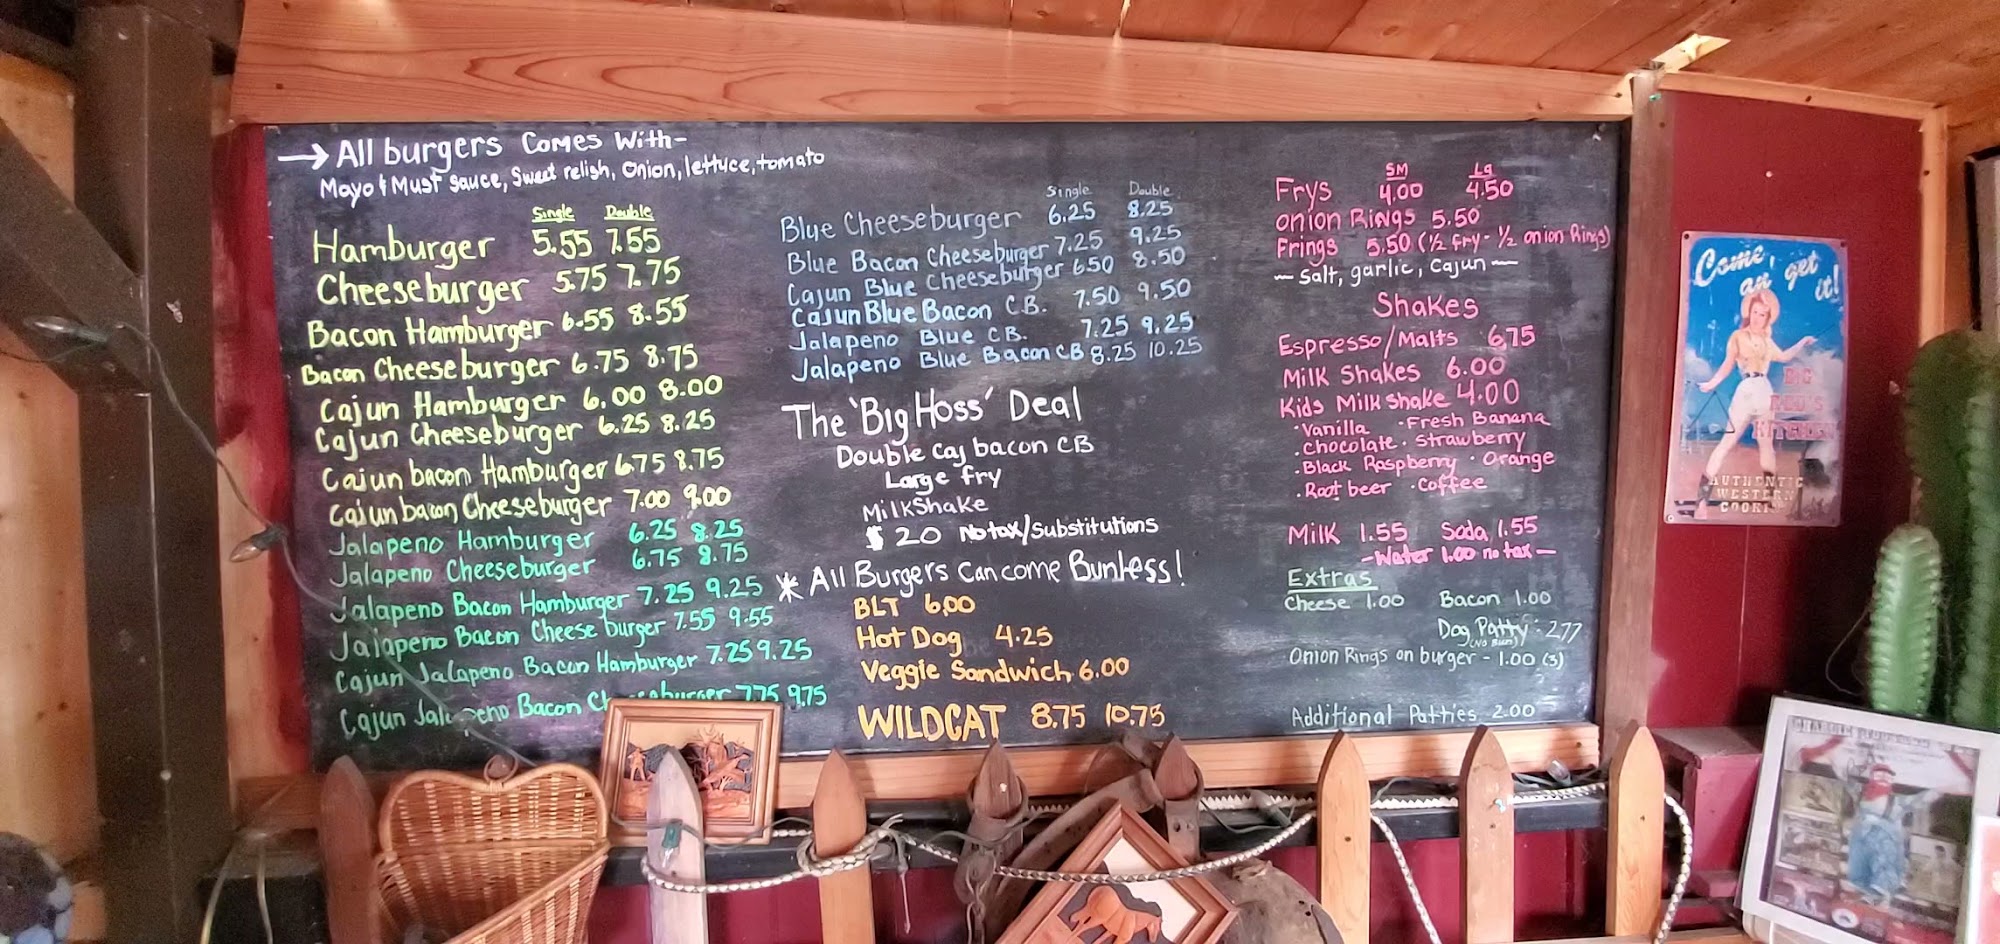 → All burgers Comes With-
Mayo & Must sauce, Sweet relish, Onion, lettuce, tomato
Single Double
Hamburger 5.55 7.55
Cheeseburger 5.75 7.75
Bacon Hamburger 6.55 8.55
Bacon Cheeseburger 6.75 8.75
Cajun Hamburger 6.00 8.00
Cajun Cheeseburger 6.25 8.25
Cajun bacon Hamburger 6.75 8.75
Cajun bacon Cheeseburger 7.00 9.00
Jalapeno Hamburger 6.25 8.25
Jalapeno Cheeseburger 6.75 8.75
Jalapeno Bacon Hamburger 7.25 9.25
Jalapeno Bacon Cheese burger 7.55 9.55
Cajun Jalapeno Bacon Hamburger 7.25 9.25
Cajun Jalapeno Bacon Cheeseburger 7.75 9.75
Single Double
Blue Cheeseburger 6.25 8.25
Blue Bacon Cheeseburger 7.25 9.25
Cajun Blue Cheeseburger 6.50 8.50
Cajun Blue Bacon C.B. 7.50 9.50
Jalapeno Blue C.B. 7.25 9.25
Jalapeno Blue Bacon CB 8.25 10.25
The 'Big Hoss' Deal
Double caj bacon CB
Large fry
MilkShake
$20 No tax/Substitutions
* All Burgers Can come Bunless!
BLT 6.00
Hot Dog 4.25
Veggie Sandwich 6.00
WILDCAT 8.75 10.75
SM Lg
Frys 4.00 4.50
Onion Rings 5.50
Frings 5.50 (1/2 fry - 1/2 onion Rings)
- Salt, garlic, Cajun -
Shakes
Espresso/Malts 6.75
Milk Shakes 6.00
Kids Milk Shake 4.00
· Vanilla · Fresh Banana
· Chocolate · Strawberry
· Black Raspberry · Orange
· Root beer · Coffee
Milk 1.55 Soda 1.55
- Water 1.00 no tax -
Extras
Cheese 1.00 Bacon 1.00
Dog Patty: 2.77
(No Bun)
Onion Rings on burger - 1.00 (3)
Additional Patties 2.00
Come an' get it!
BIG
RED'S
KITCHEN
AUTHENTIC
WESTERN
COOKIN'